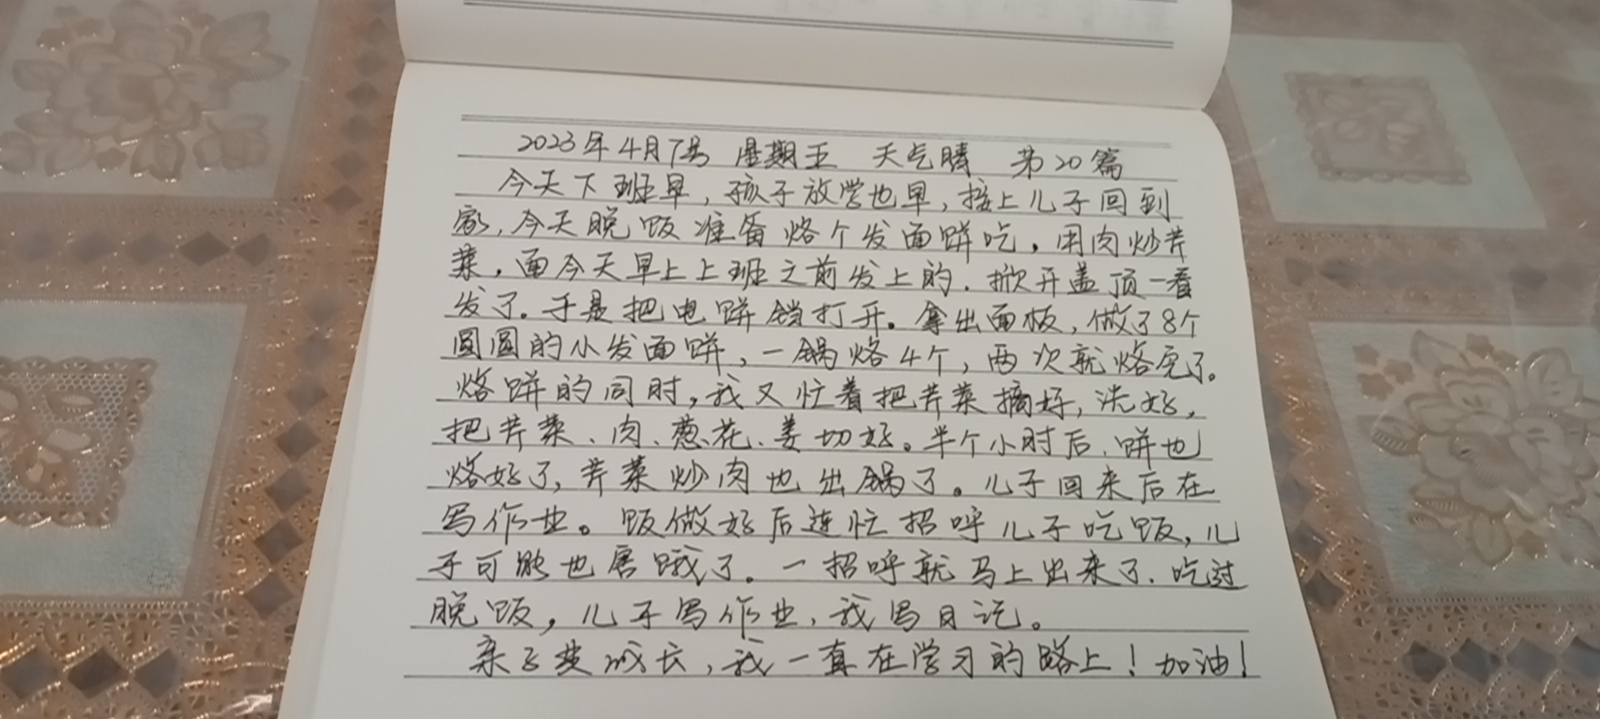 2023年4月7号 星期五 天气晴 第20篇
今天下班早，孩子放学也早，接上儿子回到
家，今天晚饭准备烙个发面饼吃，用肉炒芹
菜，面今天早上上班之前发上的，掀开盖顶一看
发了。于是把电饼铛打开。拿出面板，做了8个
圆圆的小发面饼，一锅烙4个，两次就烙完了。
烙饼的同时，我又忙着把芹菜摘好，洗好，
把芹菜、肉、葱花、姜切好。半个小时后，饼也
烙好了，芹菜炒肉也出锅了。儿子回来后在
写作业。饭做好后连忙招呼儿子吃饭，儿
子可能也害饿了。一招呼就马上出来了，吃过
晚饭，儿子写作业，我写日记。
亲子共成长，我一直在学习的路上！加油！